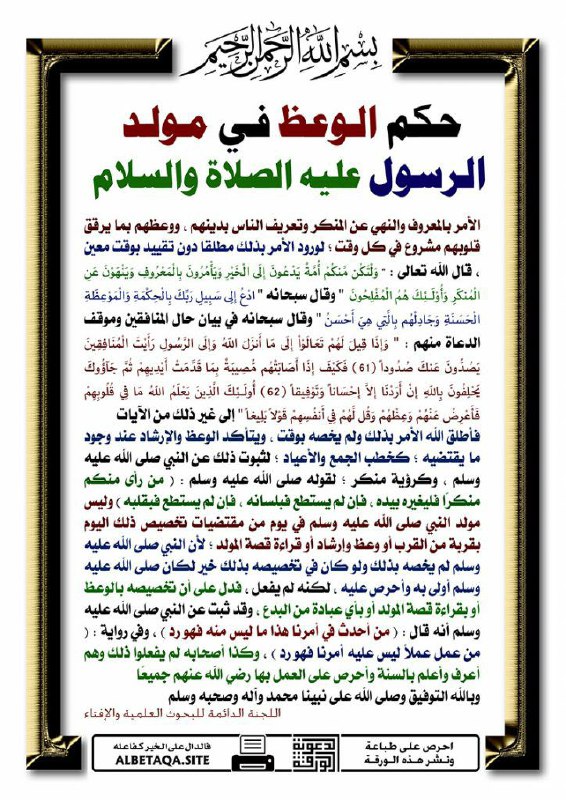 بسم الله الرحمن الرحيم
حكم الوعظ في مولد
الرسول عليه الصلاة والسلام
الأمر بالمعروف والنهي عن المنكر وتعريف الناس بدينهم ، ووعظهم بما يرقق
قلوبهم مشروع في كل وقت ؛ لورود الأمر بذلك مطلقا دون تقييد بوقت معين
، قال الله تعالى : " وَلْتَكُن مِّنكُمْ أُمَّةٌ يَدْعُونَ إِلَى الْخَيْرِ وَيَأْمُرُونَ بِالْمَعْرُوفِ وَيَنْهَوْنَ عَنِ
الْمُنكَرِ وَأُوْلَـئِكَ هُمُ الْمُفْلِحُونَ " وقال سبحانه " ادْعُ إِلى سَبِيلِ رَبِّكَ بِالْحِكْمَةِ وَالْمَوْعِظَةِ
الْحَسَنَةِ وَجَادِلْهُم بِالَّتِي هِيَ أَحْسَنُ " وقال سبحانه في بيان حال المنافقين وموقف
الدعاة منهم : " وَإِذَا قِيلَ لَهُمْ تَعَالَوْاْ إِلَى مَا أَنزَلَ اللّهُ وَإِلَى الرَّسُولِ رَأَيْتَ الْمُنَافِقِينَ
يَصُدُّونَ عَنكَ صُدُوداً (61) فَكَيْفَ إِذَا أَصَابَتْهُم مُّصِيبَةٌ بِمَا قَدَّمَتْ أَيْدِيهِمْ ثُمَّ جَآؤُوكَ
يَحْلِفُونَ بِاللّهِ إِنْ أَرَدْنَا إِلاَّ إِحْسَاناً وَتَوْفِيقاً (62) أُولَـئِكَ الَّذِينَ يَعْلَمُ اللّهُ مَا فِي قُلُوبِهِمْ
فَأَعْرِضْ عَنْهُمْ وَعِظْهُمْ وَقُل لَّهُمْ فِي أَنفُسِهِمْ قَوْلاً بَلِيغاً " إلى غير ذلك من الآيات
فأطلق الله الأمر بذلك ولم يخصه بوقت ، ويتأكد الوعظ والإرشاد عند وجود
ما يقتضيه ؛ كخطب الجمع والأعياد ؛ لثبوت ذلك عن النبي صلى الله عليه
وسلم ، وكرؤية منكر ؛ لقوله صلى الله عليه وسلم : ( من رأى منكم
منكرًا فليغيره بيده ، فإن لم يستطع فبلسانه ، فان لم يستطع فبقلبه ) وليس
مولد النبي صلى الله عليه وسلم في يوم من مقتضيات تخصيص ذلك اليوم
بقربة من القرب أو وعظ وإرشاد أو قراءة قصة المولد ؛ لأن النبي صلى الله عليه
وسلم لم يخصه بذلك ولو كان في تخصيصه بذلك خير لكان صلى الله عليه
وسلم أولى به وأحرص عليه ، لكنه لم يفعل ، فدل على أن تخصيصه بالوعظ
أو بقراءة قصة المولد أو بأي عبادة من البدع ، وقد ثبت عن النبي صلى الله عليه
وسلم أنه قال : ( من أحدث في أمرنا هذا ما ليس منه فهو رد ) ، وفي رواية : (
من عمل عملاً ليس عليه أمرنا فهو رد ) ، وكذا أصحابه لم يفعلوا ذلك وهم
أعرف وأعلم بالسنة وأحرص على العمل بها رضي الله عنهم جميعًا
وبالله التوفيق وصلى الله على نبينا محمد وآله وصحبه وسلم
اللجنة الدائمة للبحوث العلمية والإفتاء
احرص على طباعة
ونشر هذه الورقة
الورقة
الدعوية
فالدال على الخير كفاعله
ALBETAQA.SITE